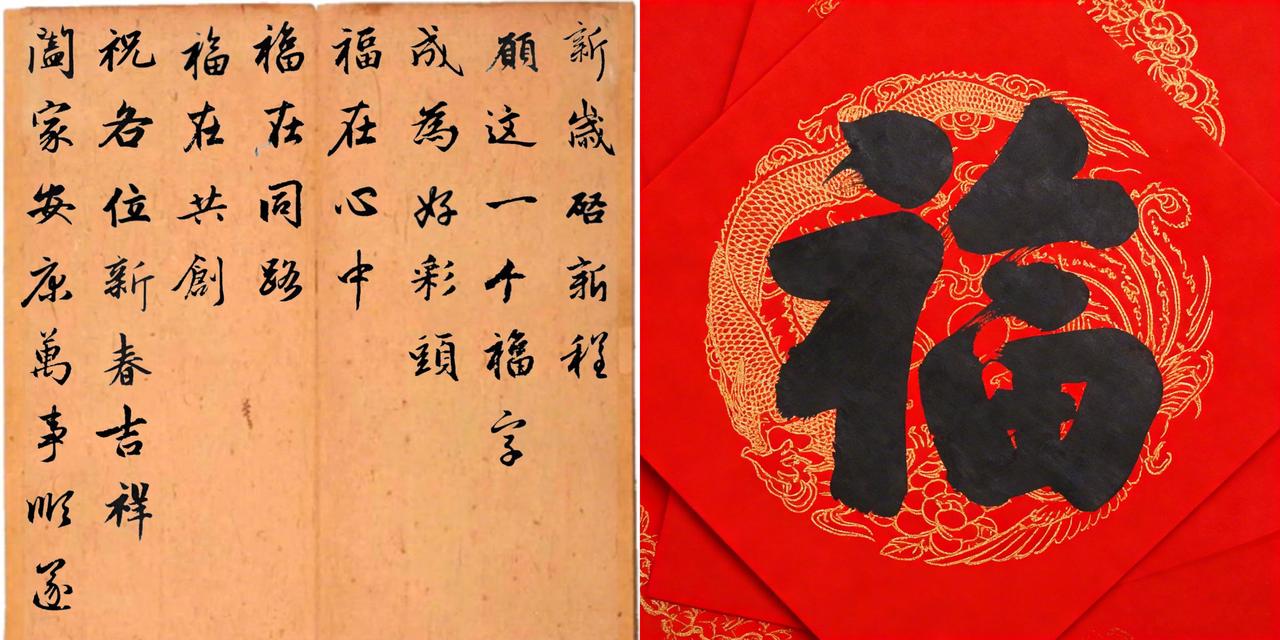 新歲啓新程
願这一个福字
成為好彩頭
福在心中
福在同路
福在共創
祝各位新春吉祥
闔家安康萬事順遂
福